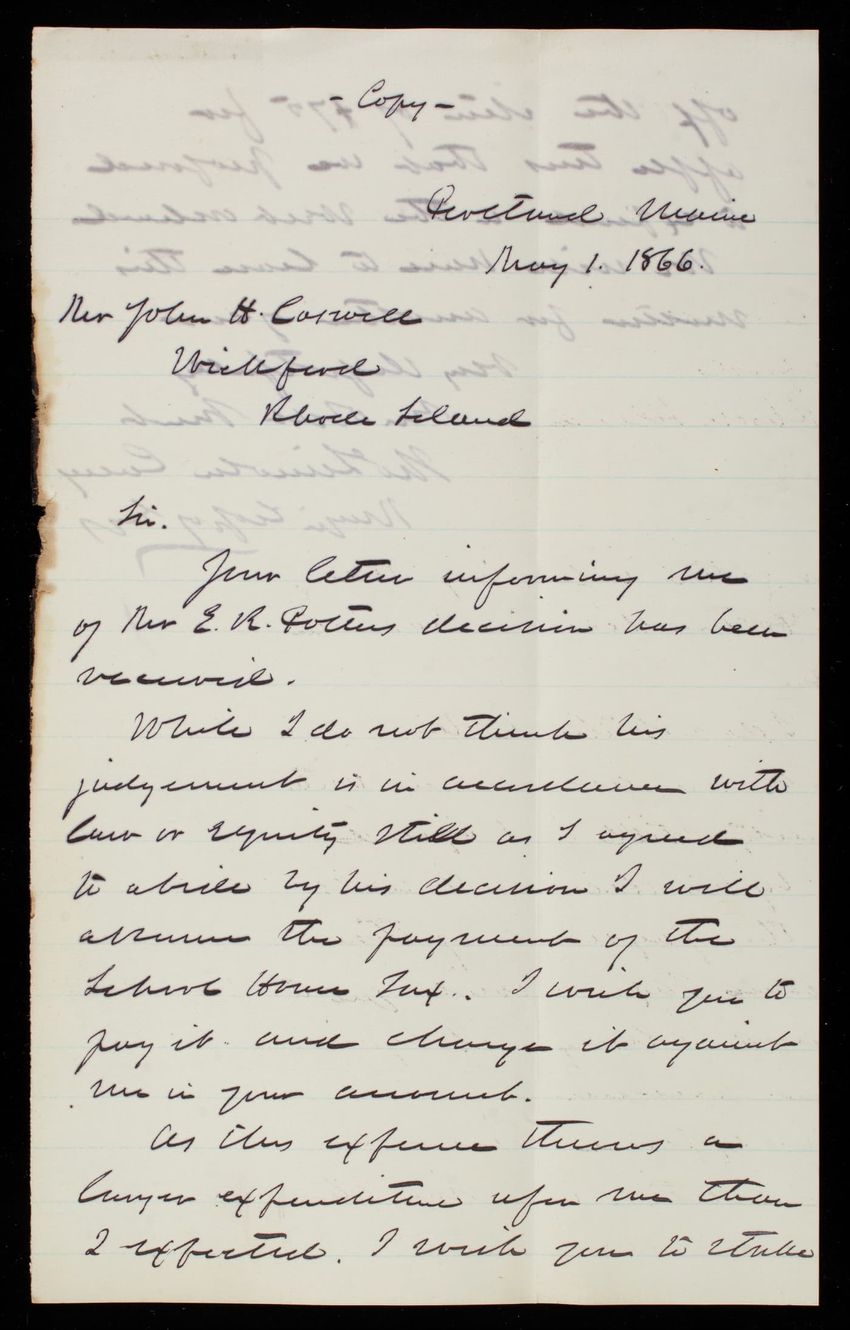 - Copy -
Portland Maine
May 1. 1866.
Rev John H. Caswell
Wickford
Rhode Island
Sir.
Your letter informing me
of Rev E. R. Potters decision has been
received.
While I do not think his
judgement is in accordance with
law or equity still as I agreed
to abide by his decision I will
assume the payment of the
School House Tax. I wish you to
pay it and charge it against
me in your account.
As this expense throws a
larger expenditure upon me than
I expected. I wish you to strike